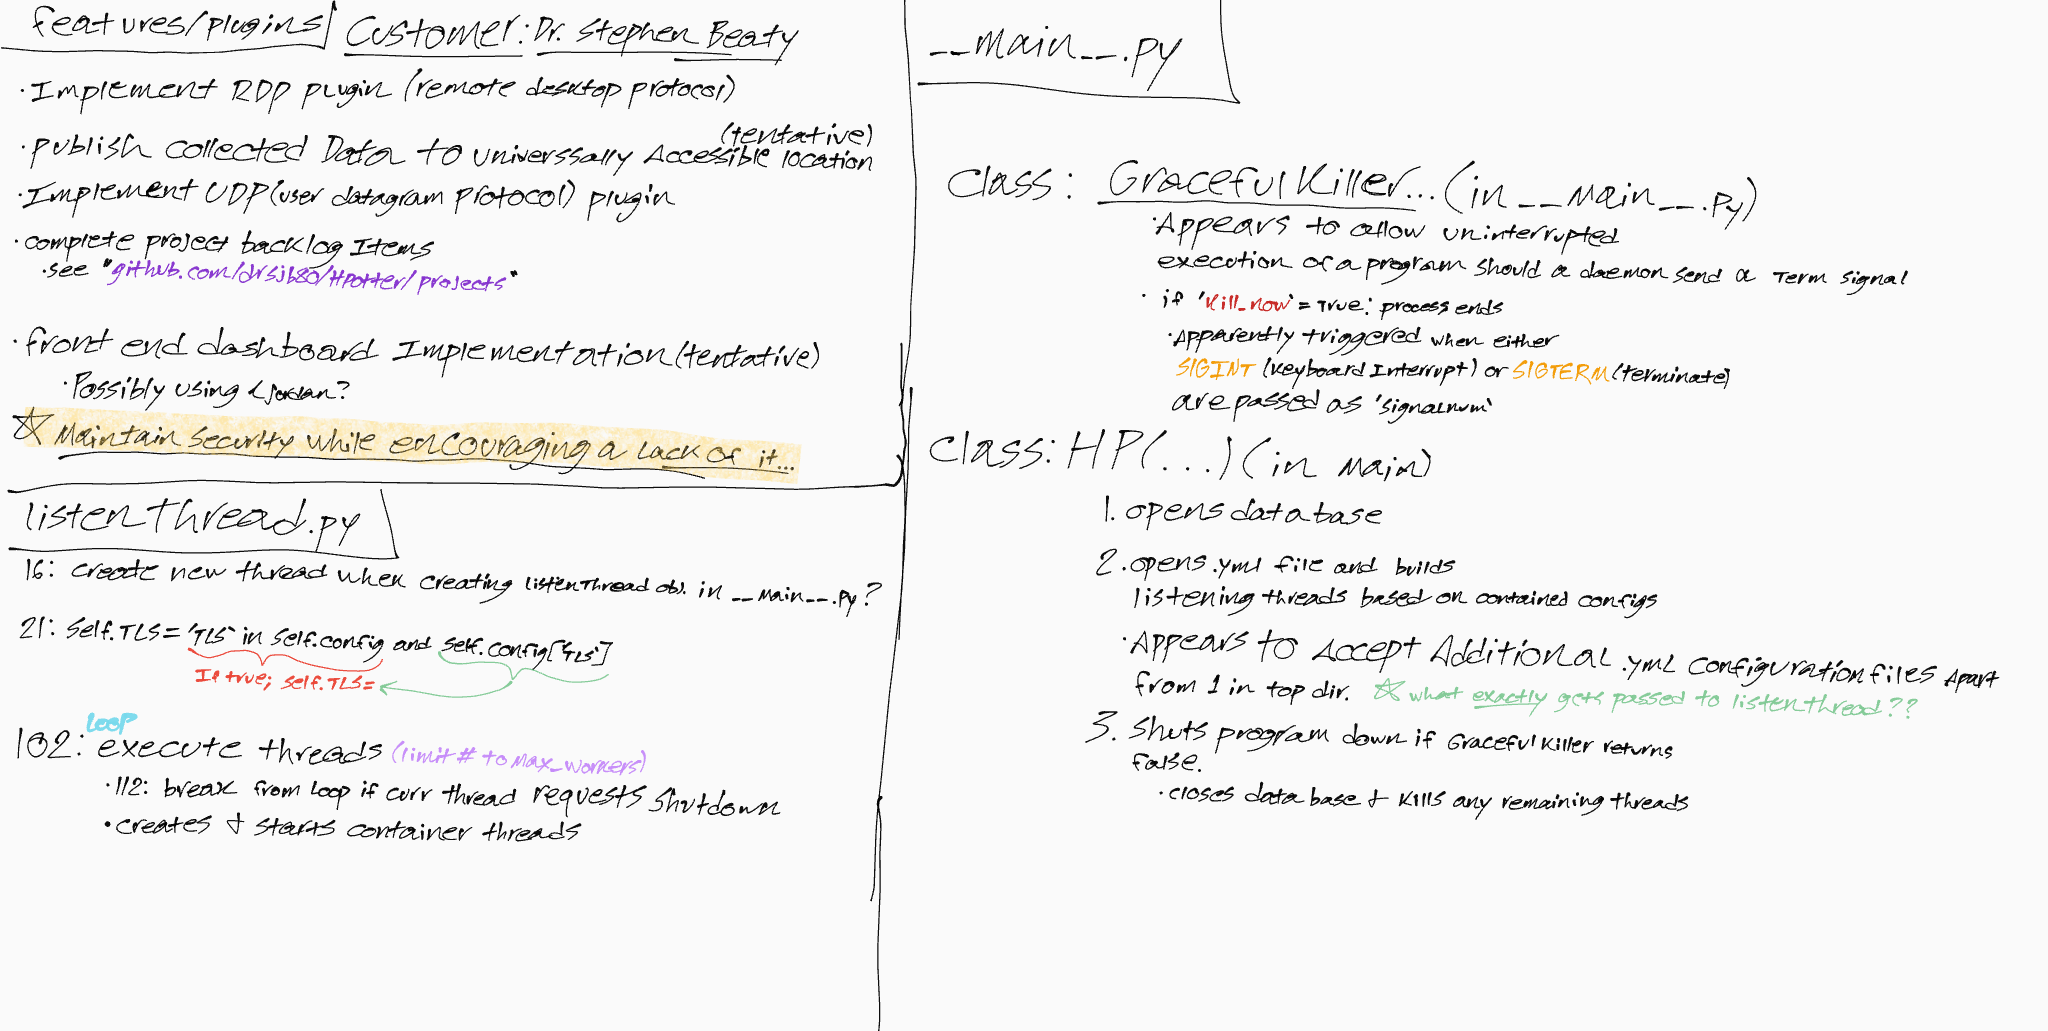 features/plugins
Customer: Dr. Stephen Beaty
·Implement RDP plugin (remote desktop protocol)
(tentative)
·publish collected Data to universsally Accessible location
·Implement UDP (user datagram protocol) plugin
·complete project backlog Items
·see "github.com/drsjb80/HPotter/projects"
·front end dashboard Implementation (tentative)
·Possibly using Jordan?
☆ Maintain security while encouraging a lack of it...
listenthread.py
16: create new thread when creating listenthread obj. in __main__.py?
21: self.TLS = 'TLS' in self.config and self.config['TLS']
If true; self.TLS=
LOOP
102: execute threads (limit # to max_workers)
·112: break from loop if curr thread requests shutdown
·creates & starts container threads
__main__.py
class: GracefulKiller...(in __main__.py)
·Appears to allow uninterrupted
execution of a program should a daemon send a Term signal
· if 'Kill_now' = True: process ends
·Apparently triggered when either
SIGINT (Keyboard Interrupt) or SIGTERM (terminate)
are passed as 'signalnum'
class: HP(...) (in main)
1. opens database
2. opens .yml file and builds
listening threads based on contained configs
·Appears to Accept Additional .yml configuration files Apart
from 1 in top dir. ☆ what exactly gets passed to listenthread??
3. shuts program down if GracefulKiller returns
false.
·closes database & kills any remaining threads